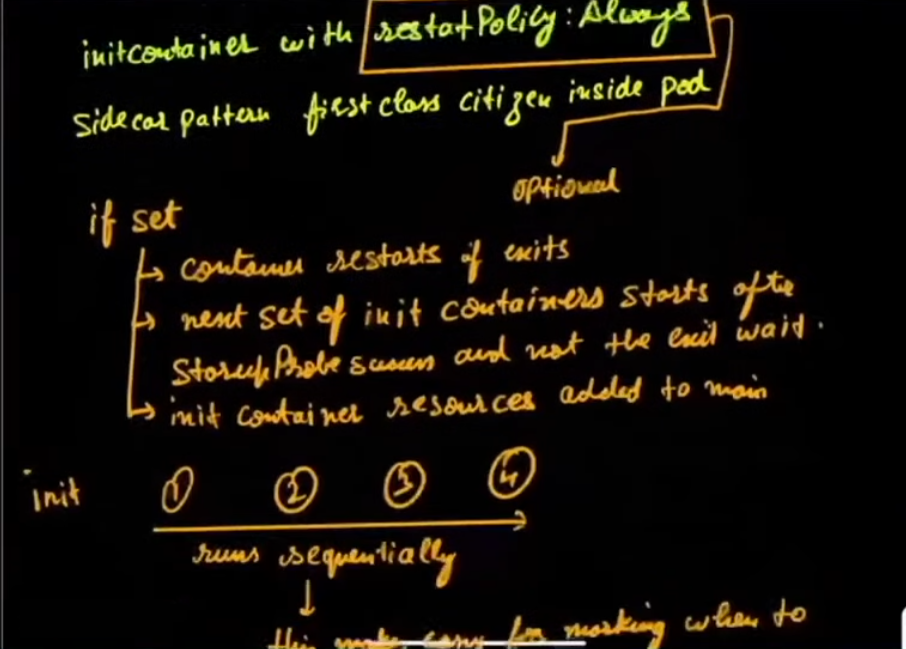 initcontainer with restatPolicy: Always
Sidecar pattern first class citizen inside pod
optional
if set
container restarts if exits
next set of init containers starts after
StartupProbe success and not the exit wait.
init container resources added to main
init 1 2 3 4
runs sequentially
this makes easy for marking when to